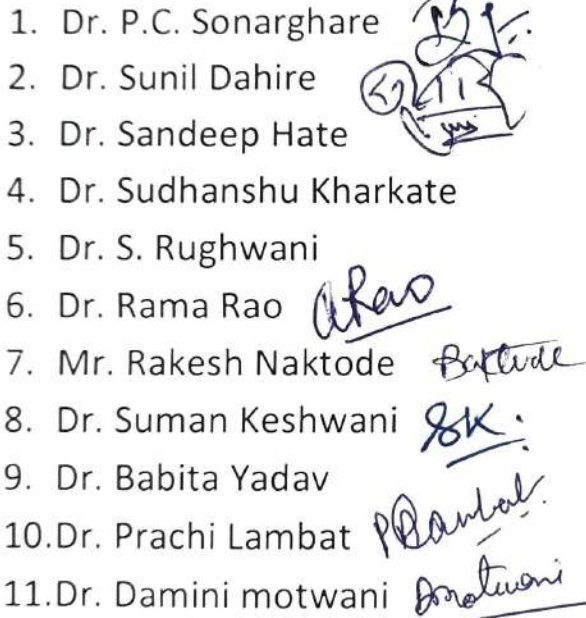 1. Dr. P.C. Sonarghare
2. Dr. Sunil Dahire
3. Dr. Sandeep Hate
4. Dr. Sudhanshu Kharkate
5. Dr. S. Rughwani
6. Dr. Rama Rao
7. Mr. Rakesh Naktode
8. Dr. Suman Keshwani SK.
9. Dr. Babita Yadav
10.Dr. Prachi Lambat
11.Dr. Damini motwani